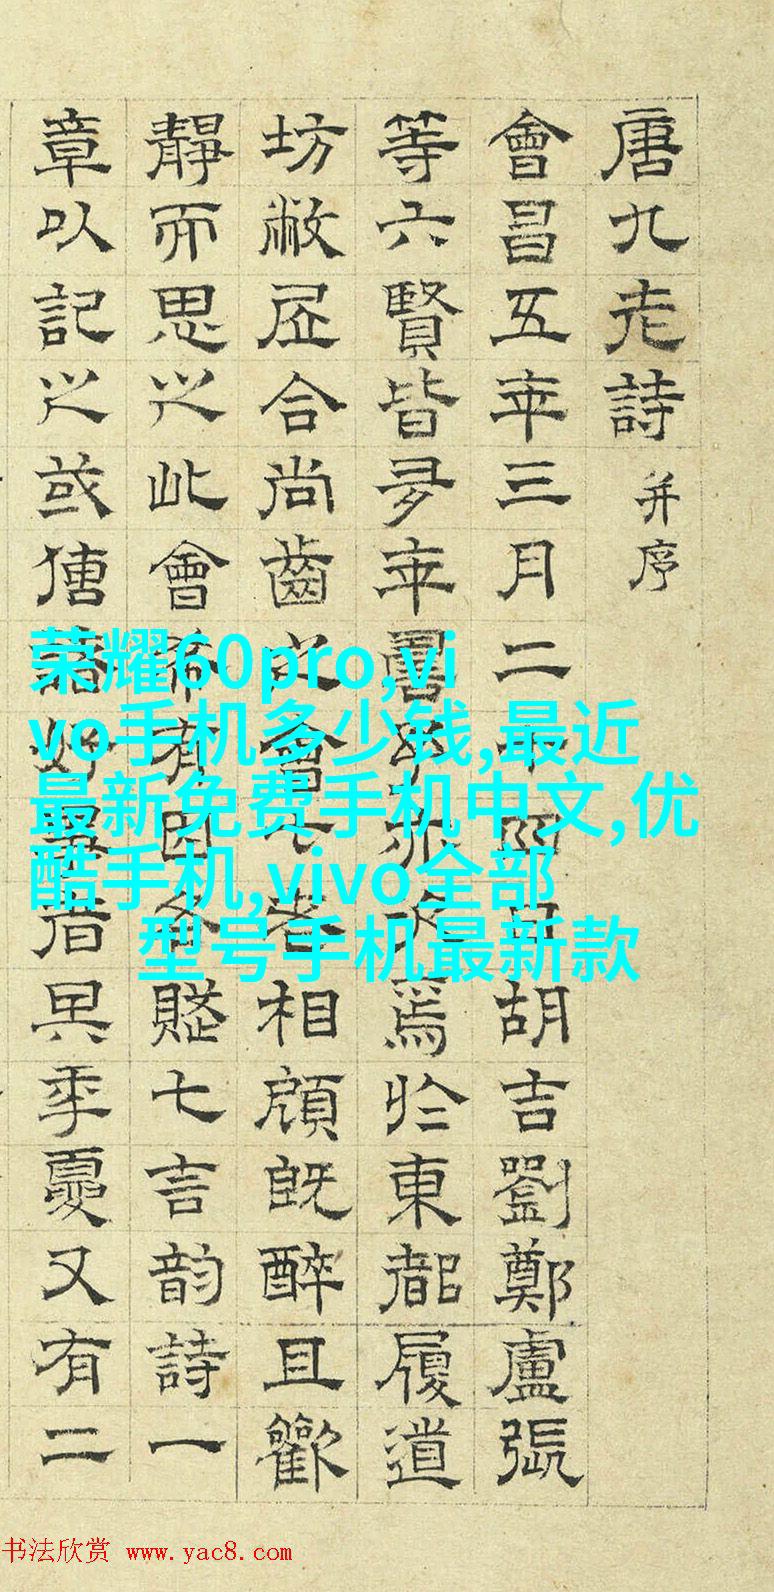 唐九老詩 并序
會昌五年三月二十四日胡吉劉鄭盧張
等六賢皆多年壽予亦次焉於東都履道
坊敝居合尚齒之會七老相顧既醉且歡
靜而思之此會稀有因各賦七言韵詩一
章以記之或傳諸好事者其年夏又有二
荣耀60pro,vi
vo手机多少钱,最近
最新免费手机中文,优
酷手机,vivo全部
型号手机最新款
书法欣赏 www.yac8.com